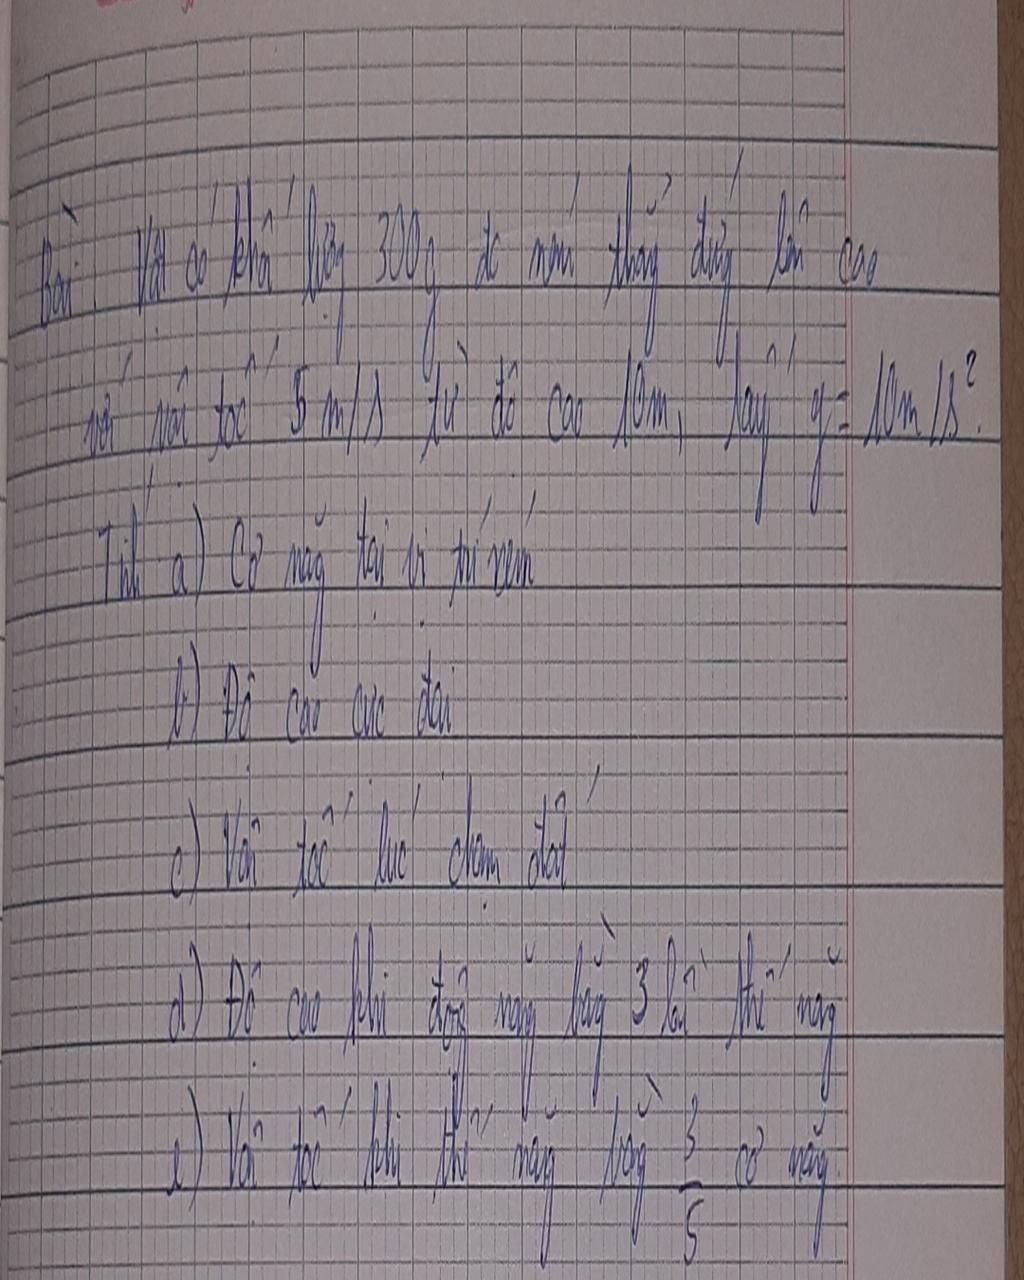 Bài: Vật có khối lượng 300g đc ném thẳng đứng lên cao
với vận tốc 5 m/s từ độ cao 10m, lấy g = 10m/s².
Tính a) Cơ năng tại vị trí ném
b) Độ cao cực đại
c) Vận tốc lúc chạm đất
d) Độ cao khi động năng bằng 3 lần thế năng
e) Vận tốc khi thế năng bằng 3/5 cơ năng.